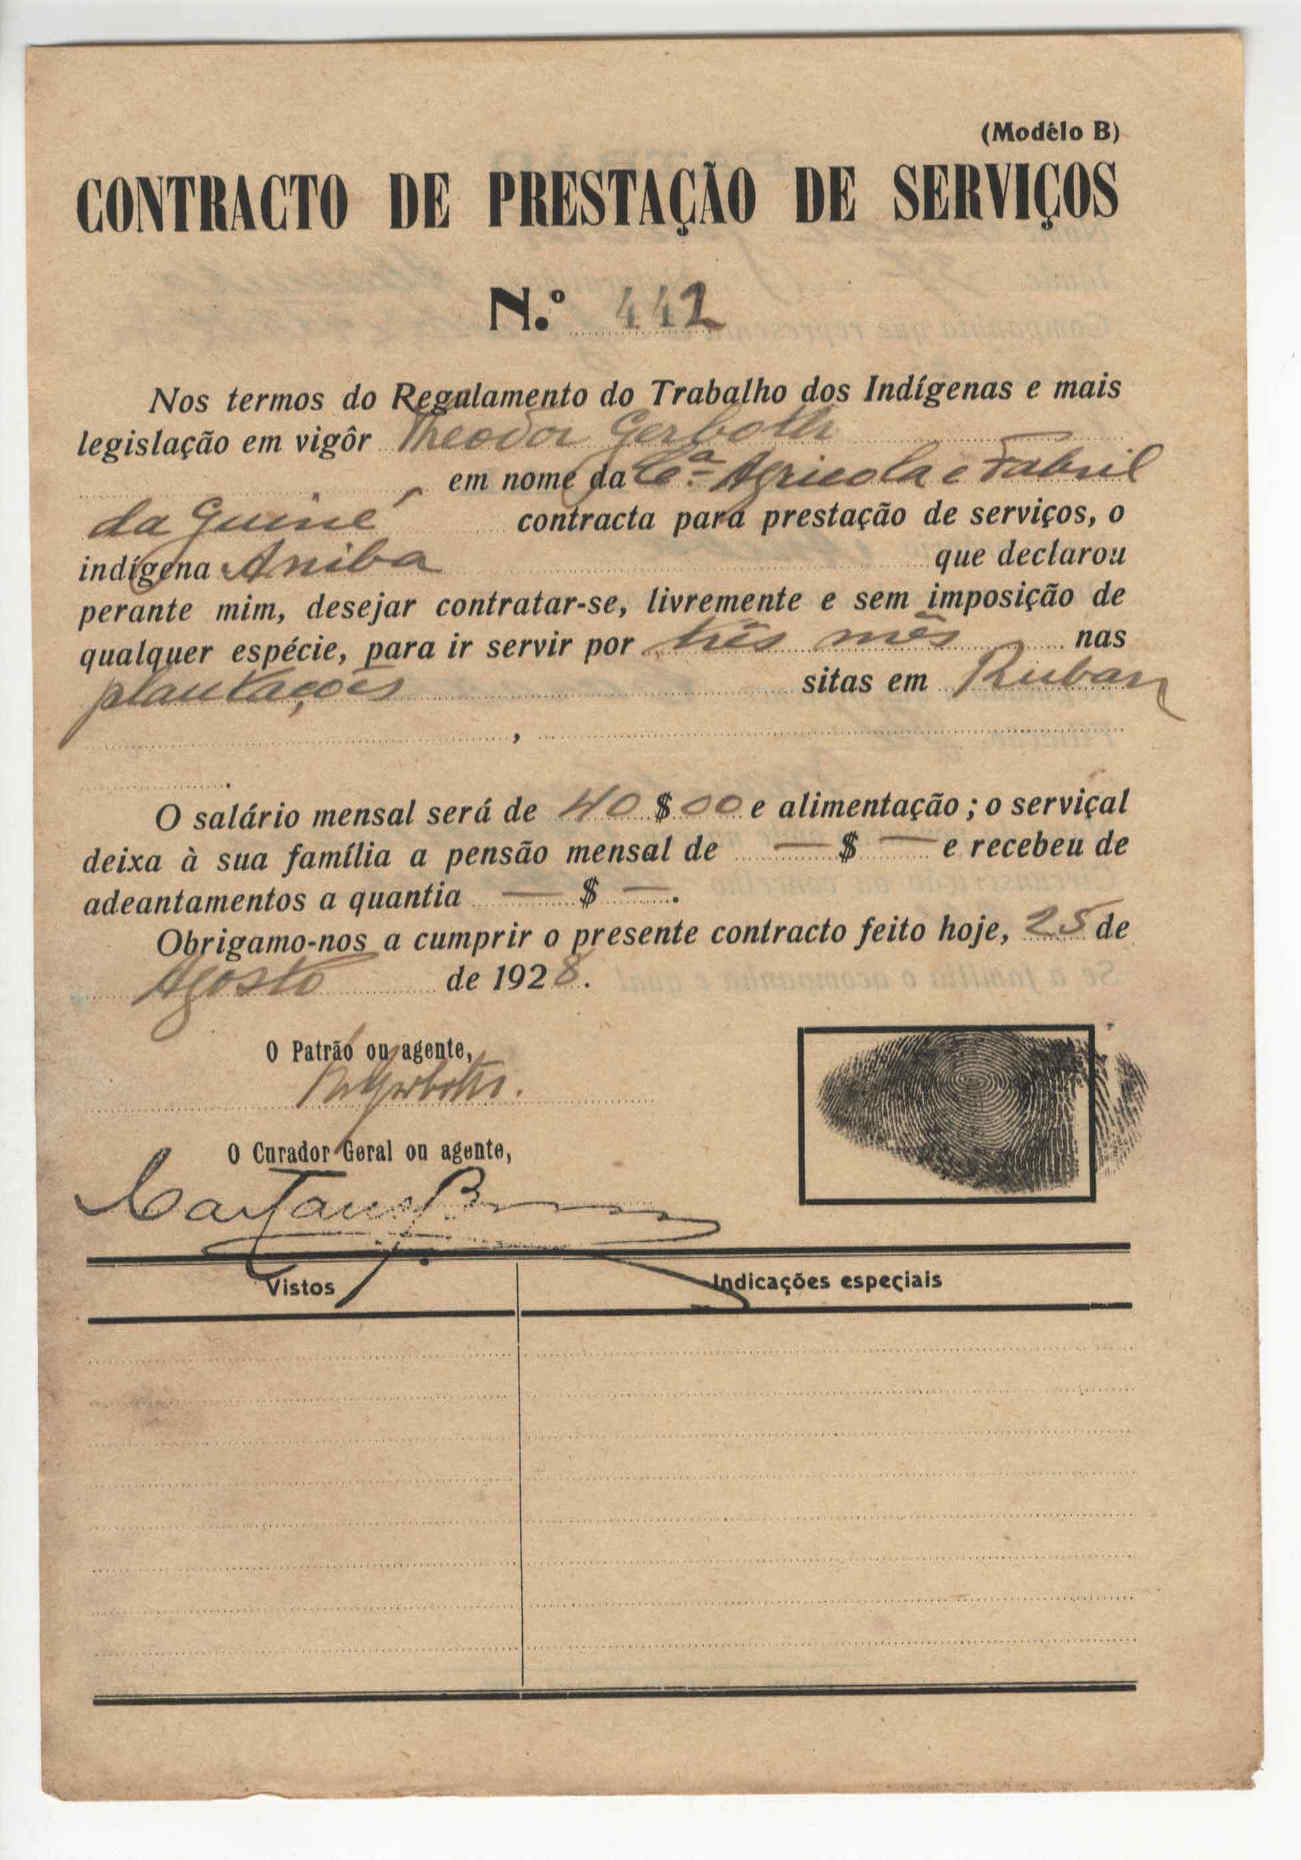 (Modêlo B)
CONTRACTO DE PRESTAÇÃO DE SERVIÇOS
N.º 442
Nos termos do Regulamento do Trabalho dos Indígenas e mais
legislação em vigôr Theodor Gerboth
em nome da Cª. Agricola e Fabril
da Guiné contracta para prestação de serviços, o
indígena Aniba que declarou
perante mim, desejar contratar-se, livremente e sem imposição de
qualquer espécie, para ir servir por três mês nas
plantações sitas em Ruban
,
.
O salário mensal será de 40 $ 00 e alimentação; o serviçal
deixa à sua família a pensão mensal de — $ — e recebeu de
adeantamentos a quantia — $ —.
Obrigamo-nos a cumprir o presente contracto feito hoje, 25 de
Agosto de 1928.
O Patrão ou agente,
Gerboth.
O Curador Geral ou agente,
Caetano
Vistos Indicações especiais